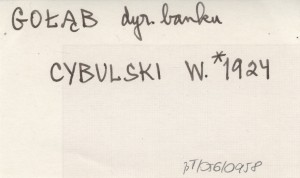 GOŁĄB dyr. banku
CYBULSKI W. *1924
pT/056/0958